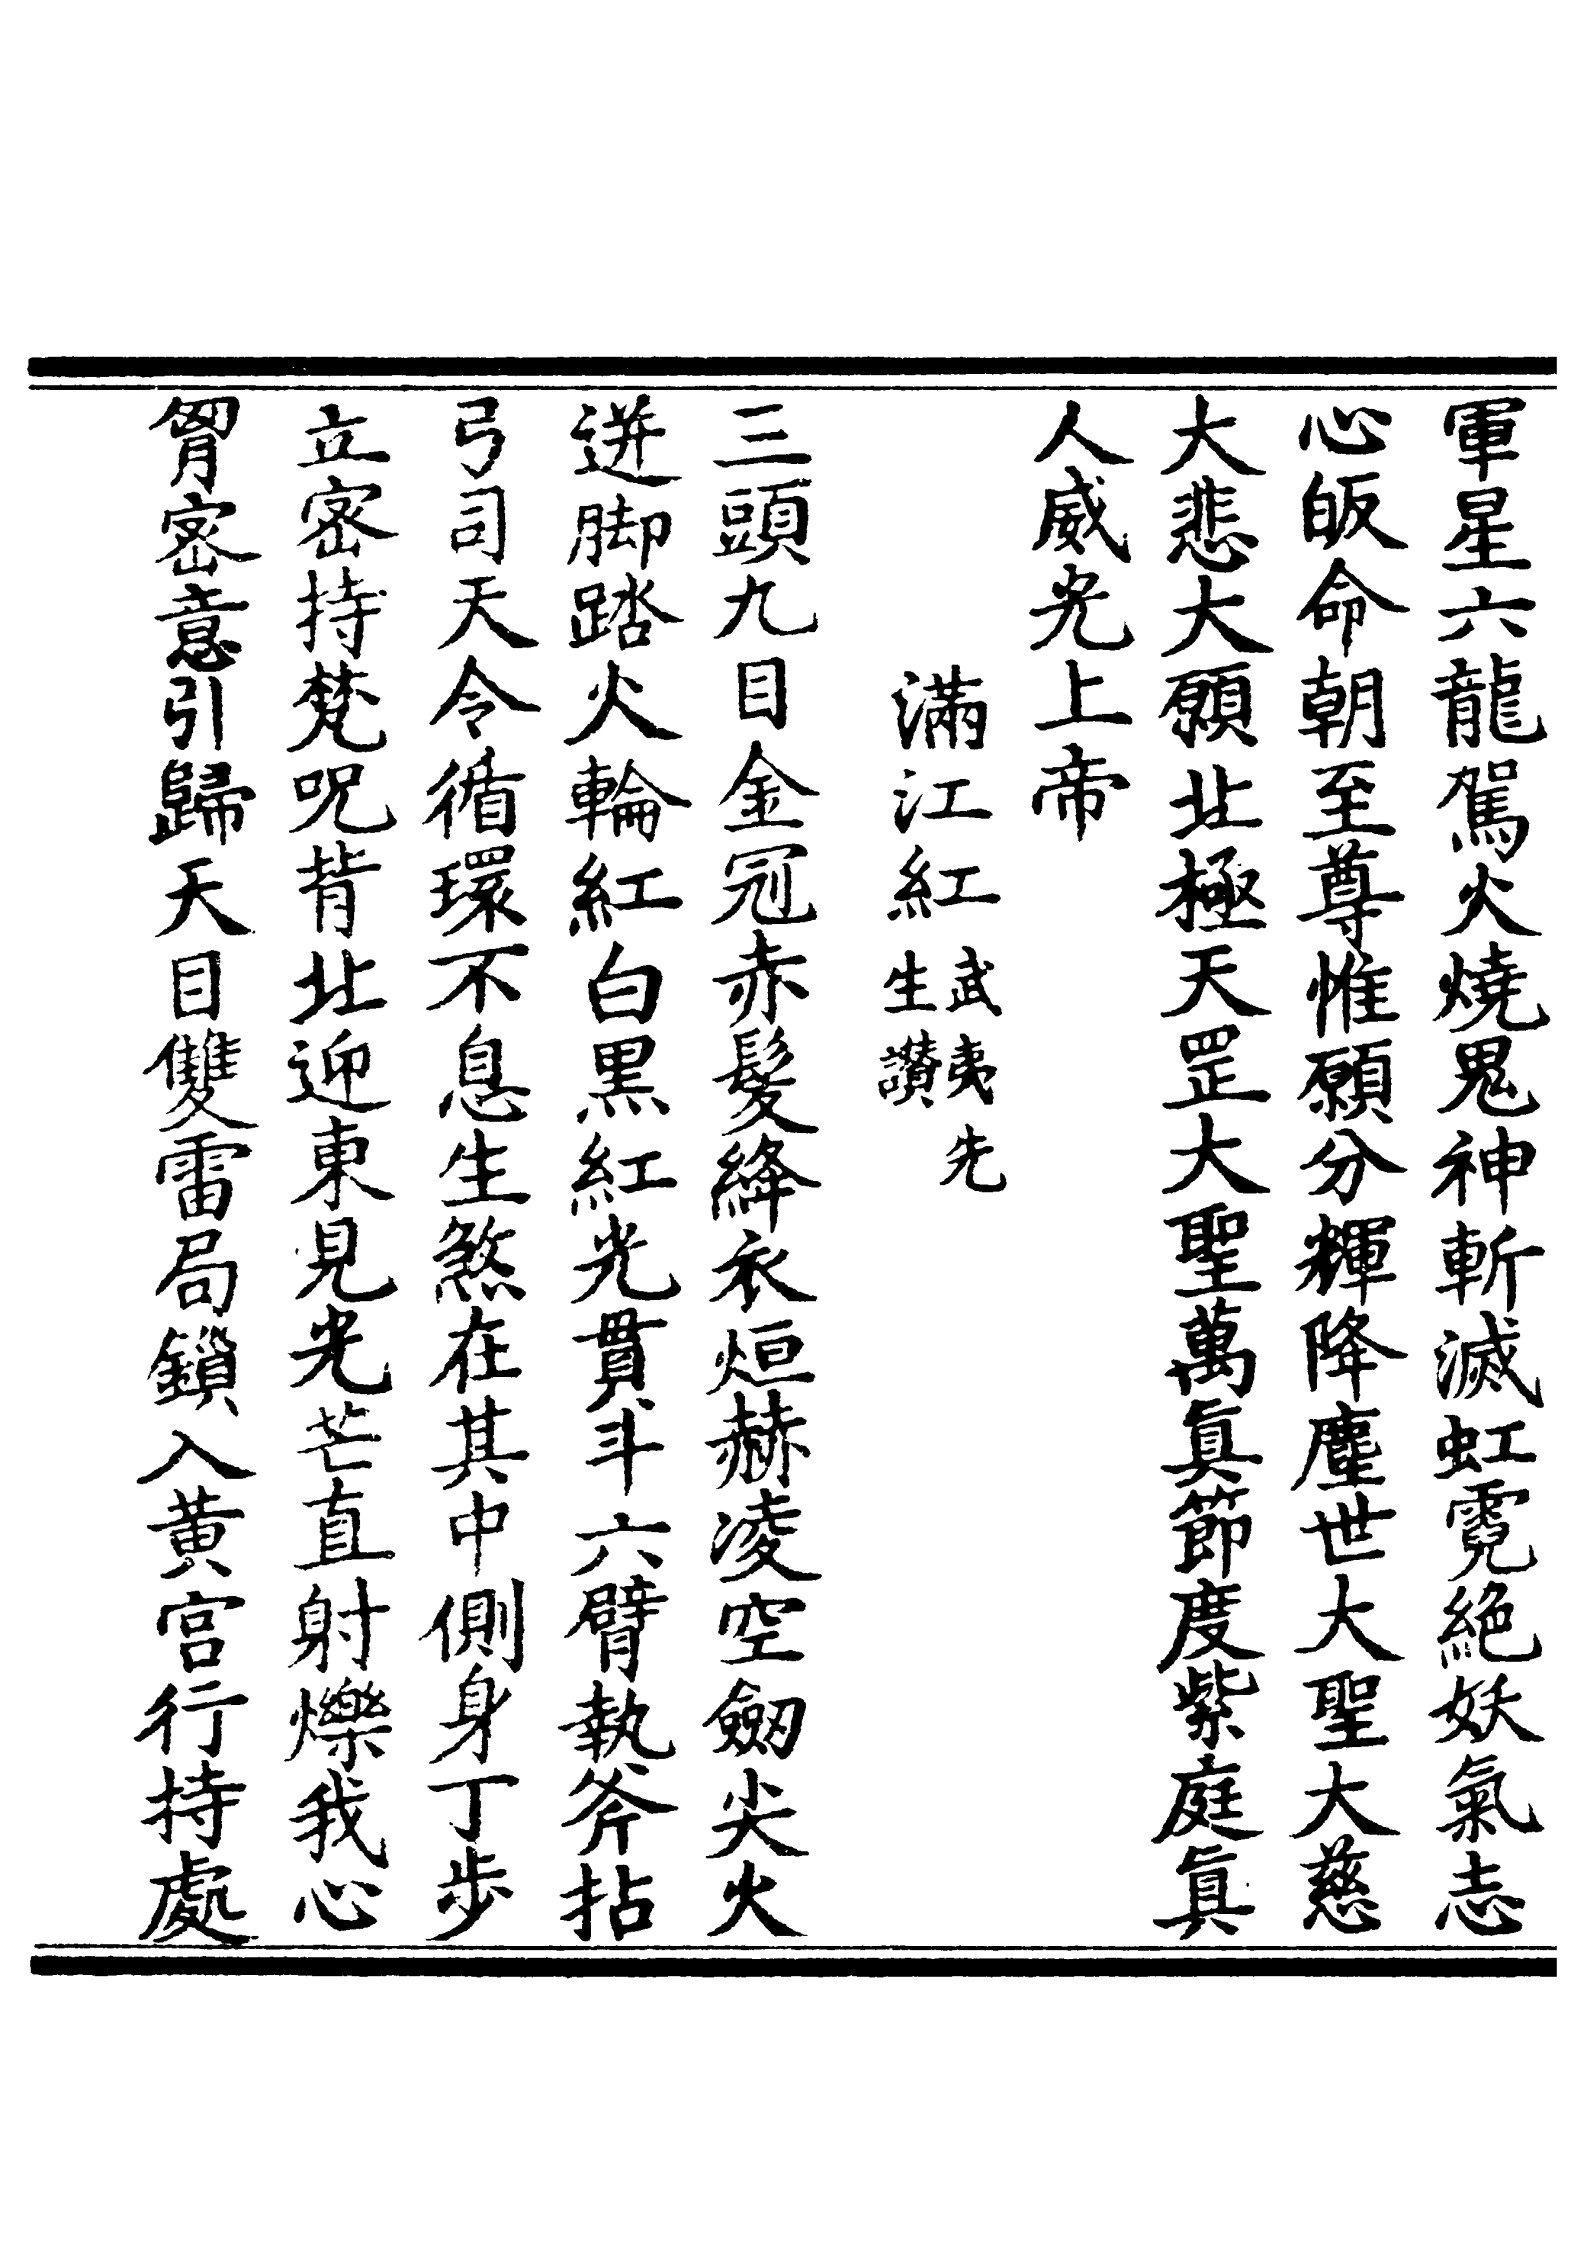 軍星六龍駕火燒鬼神斬滅虹霓絕妖氣志
心皈命朝至尊惟願分輝降塵世大聖大慈
大悲大願北極天罡大聖萬眞節度紫庭眞
人威光上帝
滿江紅武夷先生讚
三頭九目金冠赤髮絳衣烜赫凌空劒尖火
迸脚踏火輪紅白黑紅光貫斗六臂執斧拈
弓司天令循環不息生煞在其中側身丁步
立密持梵呪背北迎東見光芒直射爍我心
胷密意引歸天目雙雷局鎖入黄宫行持處